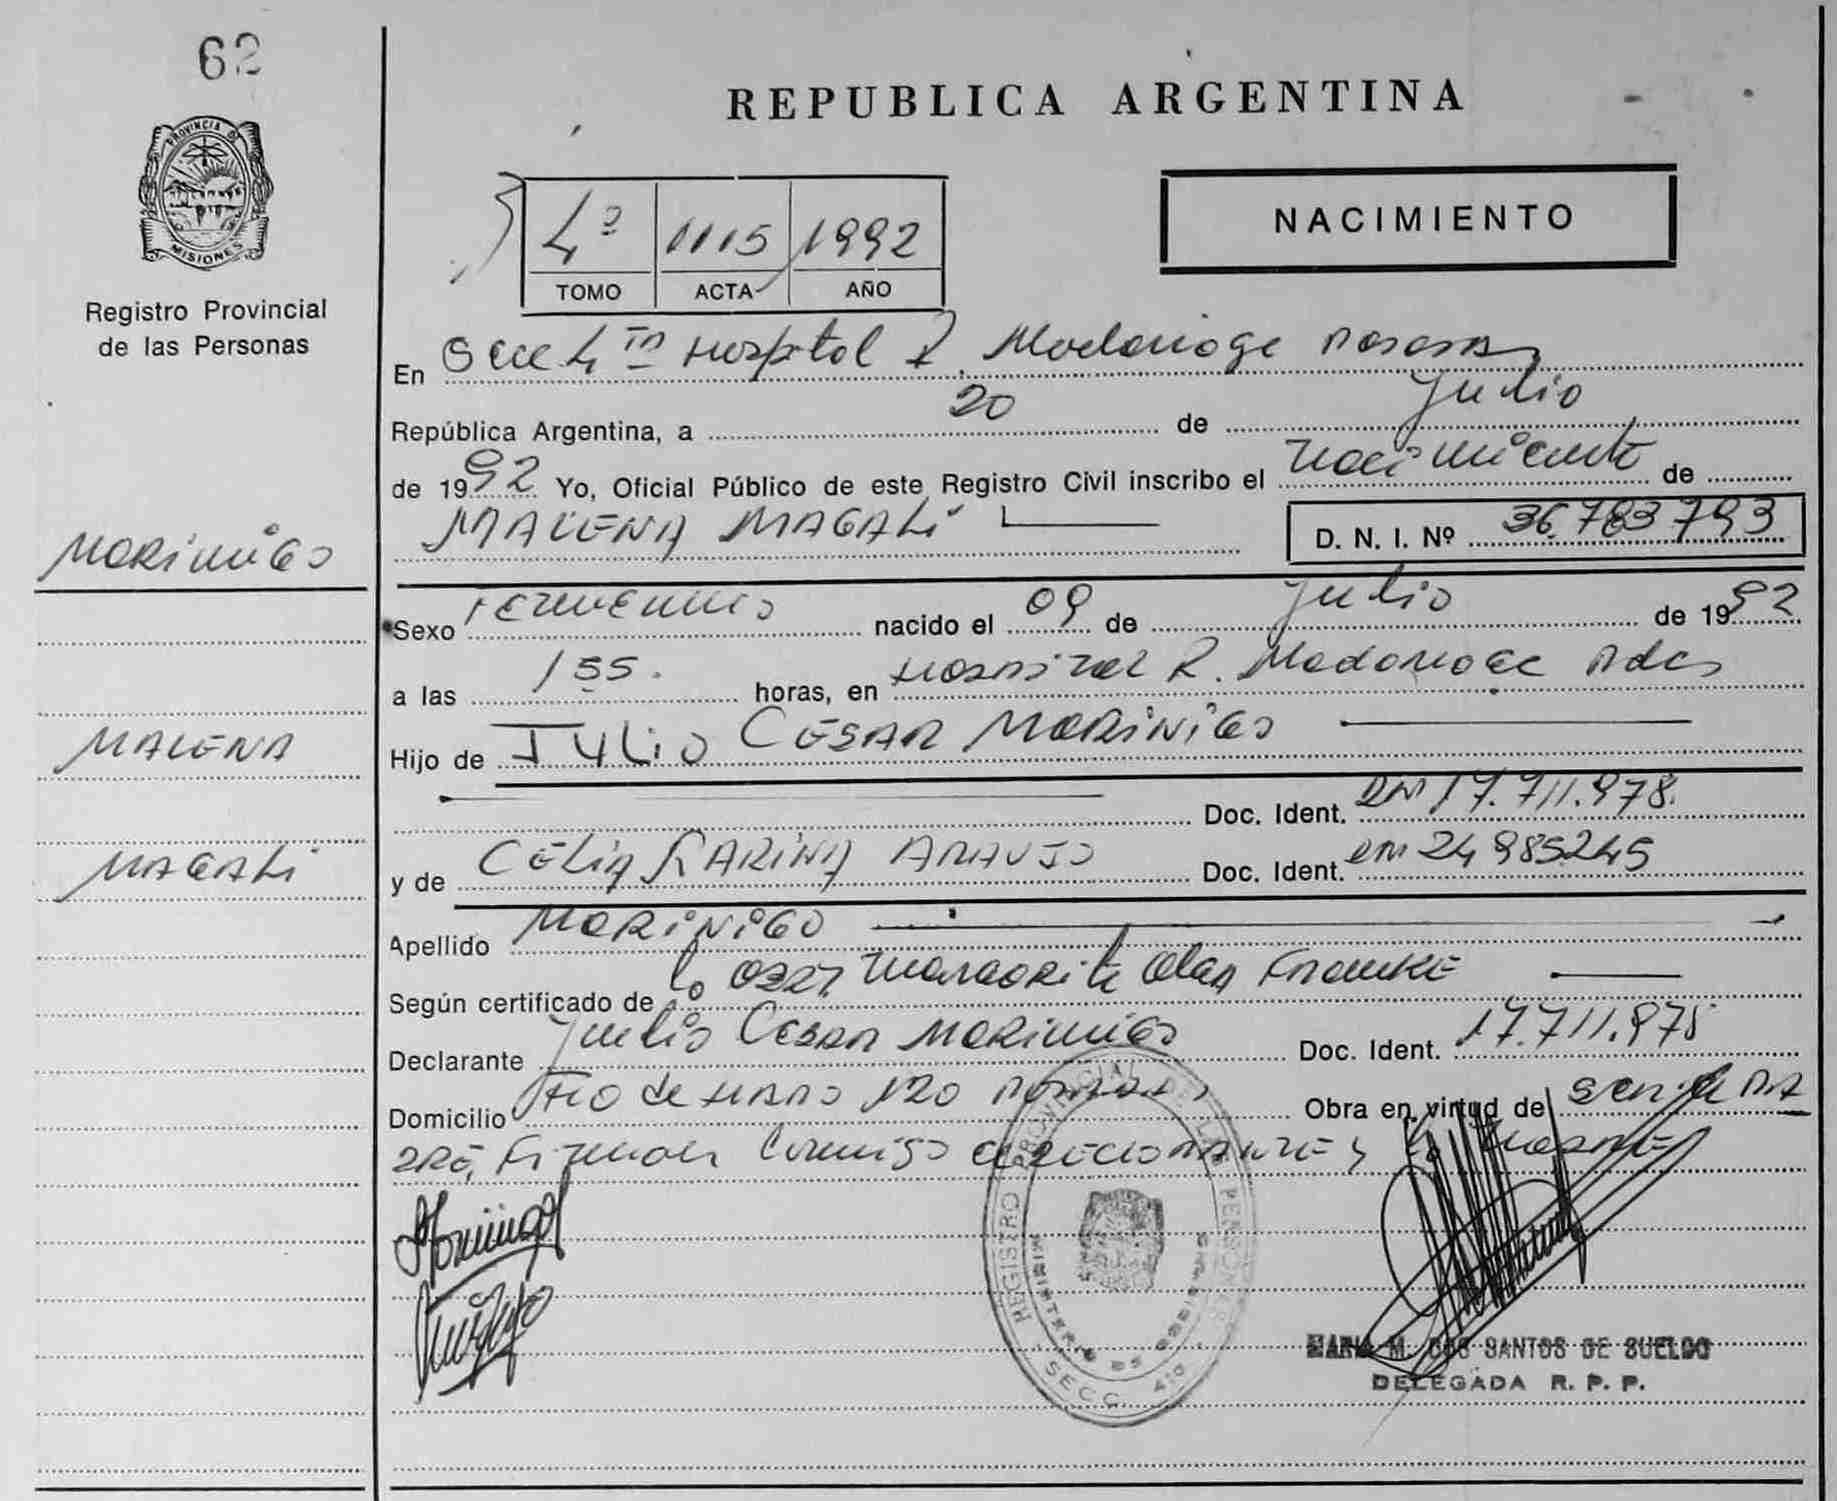 62
REPUBLICA ARGENTINA
PROVINCIA D MISIONES
Registro Provincial
de las Personas
4º 1115 1992
TOMO ACTA AÑO
NACIMIENTO
En Secc 4ta Hospital R. Madariaga Posadas
República Argentina, a 20 de Julio
de 1992 Yo, Oficial Público de este Registro Civil inscribo el nacimiento de
MALENA MAGALI
D. N. I. Nº 36.783793
MORINIGO
Sexo Femenino nacido el 09 de Julio de 1992
a las 155. horas, en Hospital R. Madariaga Pdas
MALENA
Hijo de JULIO CESAR MORINIGO
Doc. Ident. DNI 17.711.978.
MAGALI
y de CELIA KARINA ARAUJO Doc. Ident. DNI 24985245
Apellido MORINIGO
Según certificado de la Margarita Olga
Declarante Julio Cesar MORINIGO Doc. Ident. 17.711.975
Domicilio 120 Posadas Obra en virtud de ser
Firman Conmigo declarante y la madre
REGISTRO PROVINCIAL DE LAS PERSONAS
MINISTERIO DE GOBIERNO
SECC. 4ta
MARIA M. DOS SANTOS DE SUELDO
DELEGADA R. P. P.